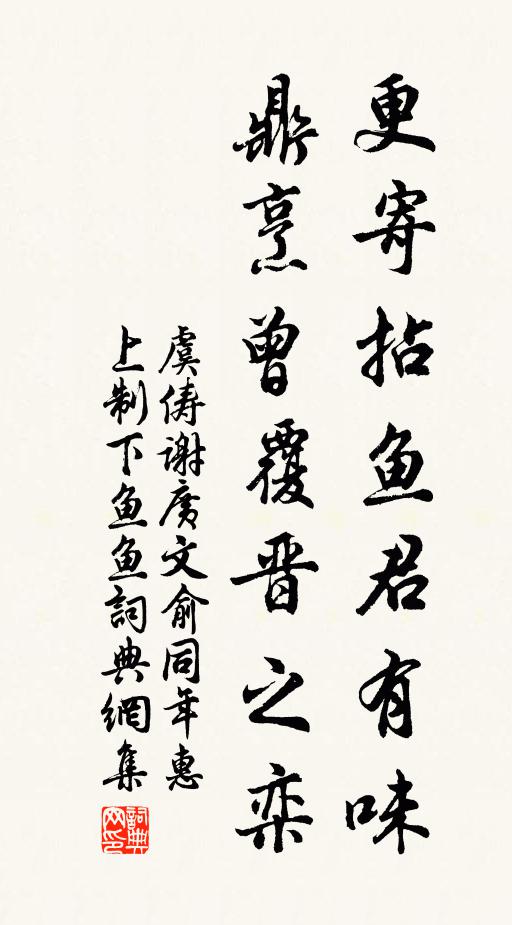 更寄拈鱼君有味
鼎烹曾覆晋之奕
虞俦谢廣文俞同年惠
上制下鱼鱼詞典網集
詞典网印